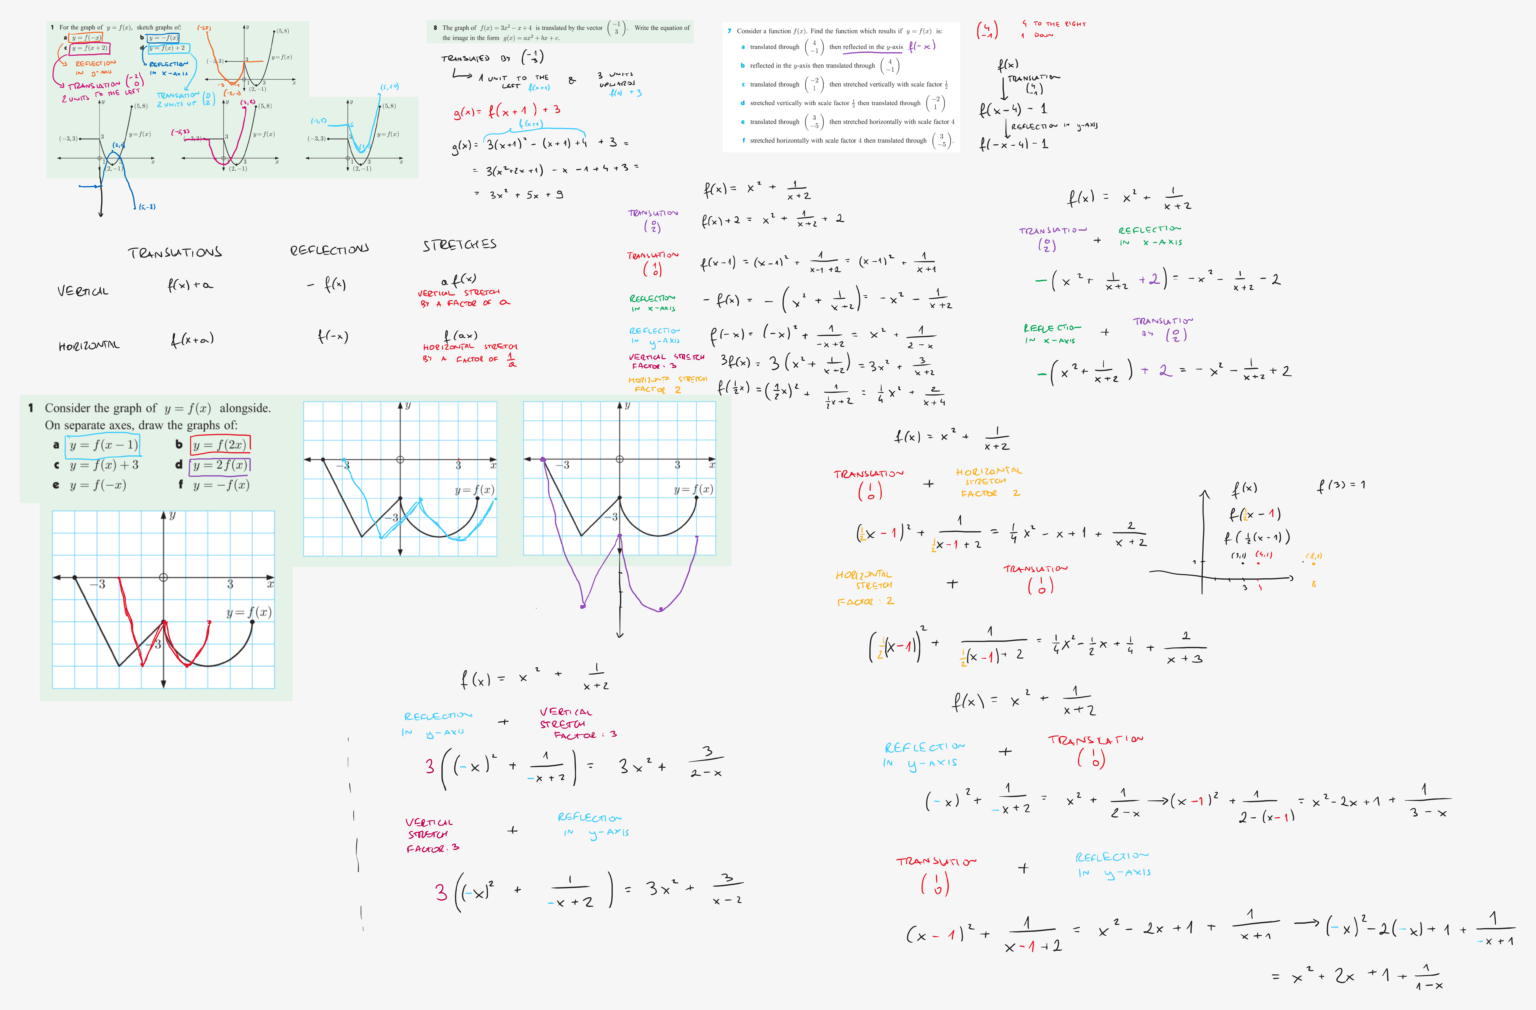 1 For the graph of y = f(x), sketch graphs of:
a y = f(−x) b y = −f(x)
c y = f(x + 2) d y = f(x) + 2
REFLECTION IN y-AXIS
REFLECTION IN x-AXIS
TRANSLATION (-2 0)
2 UNITS TO THE LEFT
TRANSLATION (0 2)
2 UNITS UP
(5, 8)
(−3, 3)
3
y = f(x)
(2, −1)
x
(5, 8)
(−3, 3)
3
y = f(x)
(2, −1)
x
(5,-8)
(3, 8)
(5, 8)
(-5,3)
3
y = f(x)
(2, −1)
x
(5, 10)
(5, 8)
(−3, 3)
3
y = f(x)
(2, −1)
x
8 The graph of f(x) = 3x² − x + 4 is translated by the vector (−1 3). Write the equation of
the image in the form g(x) = ax² + bx + c.
TRANSLATED BY (-1 3)
1 UNIT TO THE LEFT f(x+1) & 3 UNITS UPWARDS f(x) + 3
g(x) = f(x+1) + 3
f(x+1)
g(x) = 3(x+1)² - (x+1) + 4 + 3 =
= 3(x²+2x+1) - x - 1 + 4 + 3 =
= 3x² + 5x + 9
7 Consider a function f(x). Find the function which results if y = f(x) is:
a translated through (4 −1) then reflected in the y-axis f(-x)
b reflected in the y-axis then translated through (4 −1)
c translated through (−2 1) then stretched vertically with scale factor ½
d stretched vertically with scale factor ½ then translated through (−2 1)
e translated through (3 −5) then stretched horizontally with scale factor 4
f stretched horizontally with scale factor 4 then translated through (3 −5).
(4 -1) 4 TO THE RIGHT
1 DOWN
f(x)
TRANSLATION (4 -1)
f(x-4) - 1
REFLECTION IN y-AXIS
f(-x-4) - 1
TRANSLATIONS REFLECTIONS STRETCHES
VERTICAL f(x)+a - f(x) a f(x)
VERTICAL STRETCH
BY A FACTOR OF a
HORIZONTAL f(x+a) f(-x) f(ax)
HORIZONTAL STRETCH
BY A FACTOR OF 1/a
f(x) = x² + 1/(x+2)
TRANSLATION (0 2) f(x)+2 = x² + 1/(x+2) + 2
TRANSLATION (1 0) f(x-1) = (x-1)² + 1/(x-1+2) = (x-1)² + 1/(x+1)
REFLECTION IN x-AXIS - f(x) = - (x² + 1/(x+2)) = -x² - 1/(x+2)
REFLECTION IN y-AXIS f(-x) = (-x)² + 1/(-x+2) = x² + 1/(2-x)
VERTICAL STRETCH FACTOR: 3 3f(x) = 3(x² + 1/(x+2)) = 3x² + 3/(x+2)
HORIZONTAL STRETCH FACTOR 2 f(½x) = (½x)² + 1/(½x+2) = ¼x² + 2/(x+4)
f(x) = x² + 1/(x+2)
TRANSLATION (0 2) + REFLECTION IN x-AXIS
-(x² + 1/(x+2) + 2) = -x² - 1/(x+2) - 2
REFLECTION IN x-AXIS + TRANSLATION BY (0 2)
-(x² + 1/(x+2)) + 2 = -x² - 1/(x+2) + 2
1 Consider the graph of y = f(x) alongside.
On separate axes, draw the graphs of:
a y = f(x − 1) b y = f(2x)
c y = f(x) + 3 d y = 2f(x)
e y = f(−x) f y = −f(x)
y
−3 3 x
y = f(x)
−3
y
−3 3 x
y = f(x)
−3
y
−3 3 x
y = f(x)
−3
f(x) = x² + 1/(x+2)
TRANSLATION (1 0) + HORIZONTAL STRETCH FACTOR 2
(½x - 1)² + 1/(½x-1+2) = ¼x² - x + 1 + 2/(x+2)
HORIZONTAL STRETCH FACTOR: 2 + TRANSLATION (1 0)
(½(x-1))² + 1/(½(x-1)+2) = ¼x² - ½x + ¼ + 2/(x+3)
f(x) f(3) = 1
f(½x - 1)
f(½(x-1))
(3,1) (4,1) (8,1)
3 8
f(x) = x² + 1/(x+2)
REFLECTION IN y-AXIS + VERTICAL STRETCH FACTOR: 3
3((-x)² + 1/(-x+2)) = 3x² + 3/(2-x)
VERTICAL STRETCH FACTOR: 3 + REFLECTION IN y-AXIS
3((-x)² + 1/(-x+2)) = 3x² + 3/(x-2)
f(x) = x² + 1/(x+2)
REFLECTION IN y-AXIS + TRANSLATION (1 0)
(-x)² + 1/(-x+2) = x² + 1/(2-x) → (x-1)² + 1/(2-(x-1)) = x² - 2x + 1 + 1/(3-x)
TRANSLATION (1 0) + REFLECTION IN y-AXIS
(x-1)² + 1/(x-1+2) = x² - 2x + 1 + 1/(x+1) → (-x)² - 2(-x) + 1 + 1/(-x+1)
= x² + 2x + 1 + 1/(1-x)